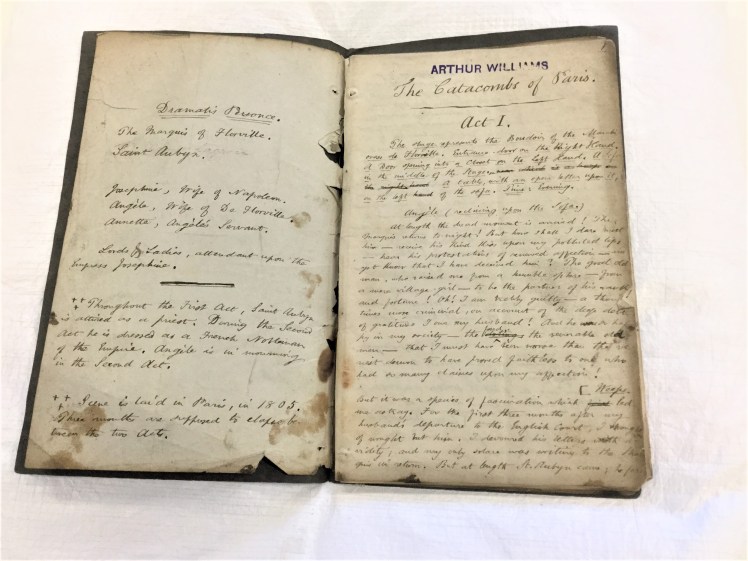 Dramatis Personæ.
The Marquis of Florville.
Saint Aubyn.
Josephine, Wife of Napoleon.
Angèle, Wife of De Florville.
Annette, Angèle's Servant.
Lords & Ladies, attendant upon the
Empress Josephine.
Throughout the First Act, Saint Aubyn
is attired as a priest. During the Second
Act he is dressed as a French Nobleman
of the Empire. Angèle is in mourning
in the Second Act.
Scene is laid in Paris, in 1805.
Three months are supposed to elapse be-
tween the two Acts.
ARTHUR WILLIAMS
The Catacombs of Paris.
Act I.
The stage represents the Boudoir of the
de Florville. Entrance door on the Right Hand.
A Door opening into a Closet on the Left Hand. A
in the middle of the Stage
A table, with an open letter upon it,
on the left hand of the sofa. Time: Evening.
Angèle (reclining upon the Sofa)
At length the dread moment is arrived! The
Marquis returns to-night! But how shall I dare meet
him — receive his kind kiss upon my polluted lips
— hear his protestations of renewed affection —
yet know that I have deceived him? The good old
man, who raised me from a humble sphere — from
a mere village girl — to be the partner of his wealth
and fortune! Oh! I am really guilty — a thousand
times more criminal, on account of the deep debt
of gratitude I owe my husband! And he
in my society — the the venerable old
man — that I must have been worse than the
most demon to have proved faithless to one who
had so many claims upon my affection!
[Weeps.
But it was a species of fascination which led
me astray. For the first three months after my
husband's departure to the English Court, I
of nought but him. I devoured his letters with
avidity; and my only solace was writing to the
quis in return. But at length St. Aubyn came; to